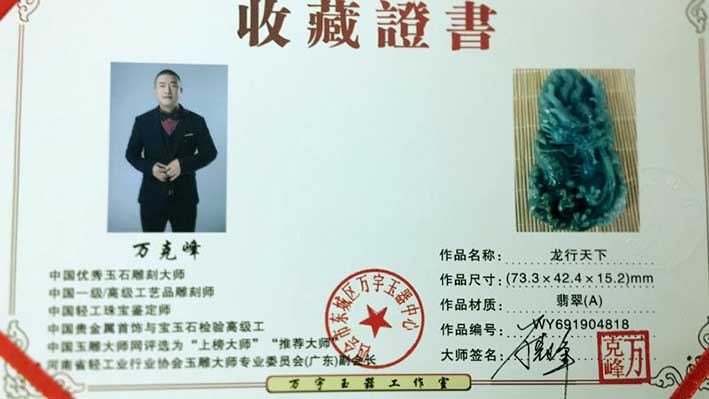 收藏證書
万克峰
中国优秀玉石雕刻大师
中国一级/高级工艺品雕刻师
中国轻工珠宝鉴定师
中国贵金属首饰与宝玉石检验高级工
中国玉雕大师网评选为“上榜大师”“推荐大师”
河南省轻工业行业协会玉雕大师专业委员会(广东)副会长
作品名称: 龙行天下
作品尺寸: (73.3×42.4×15.2)mm
作品材质: 翡翠(A)
作品编号: WY691904818
大师签名:
万克峰
会市东城区万宇玉器中心
万宇玉器工作室